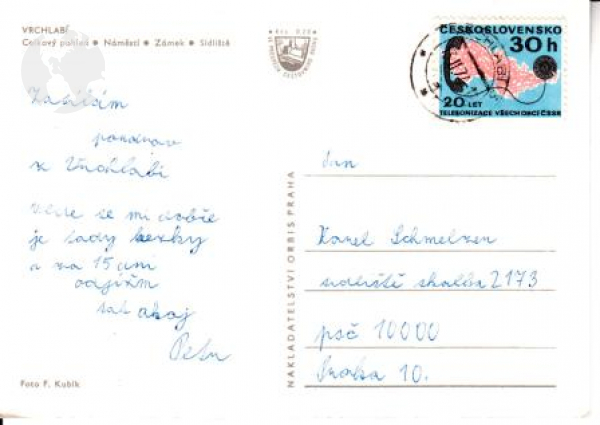 VRCHLABÍ
Celkový pohled ● Náměstí ● Zámek ● Sídliště
Kčs 0,20
ČESKOSLOVENSKO
30 h
20 LET
TELEFONIZACE VŠECH OBCÍ ČSSR
Zasílám
pozdrav
z Vrchlabí
vede se mi dobře
je tady hezky
a za 15 dní
odjíždím
tak ahoj
Petr
Foto F. Kubík
NAKLADATELSTVÍ ORBIS PRAHA
Pan
Karel Schmelzer
sidliště skalka 2173
psč 10000
Praha 10.